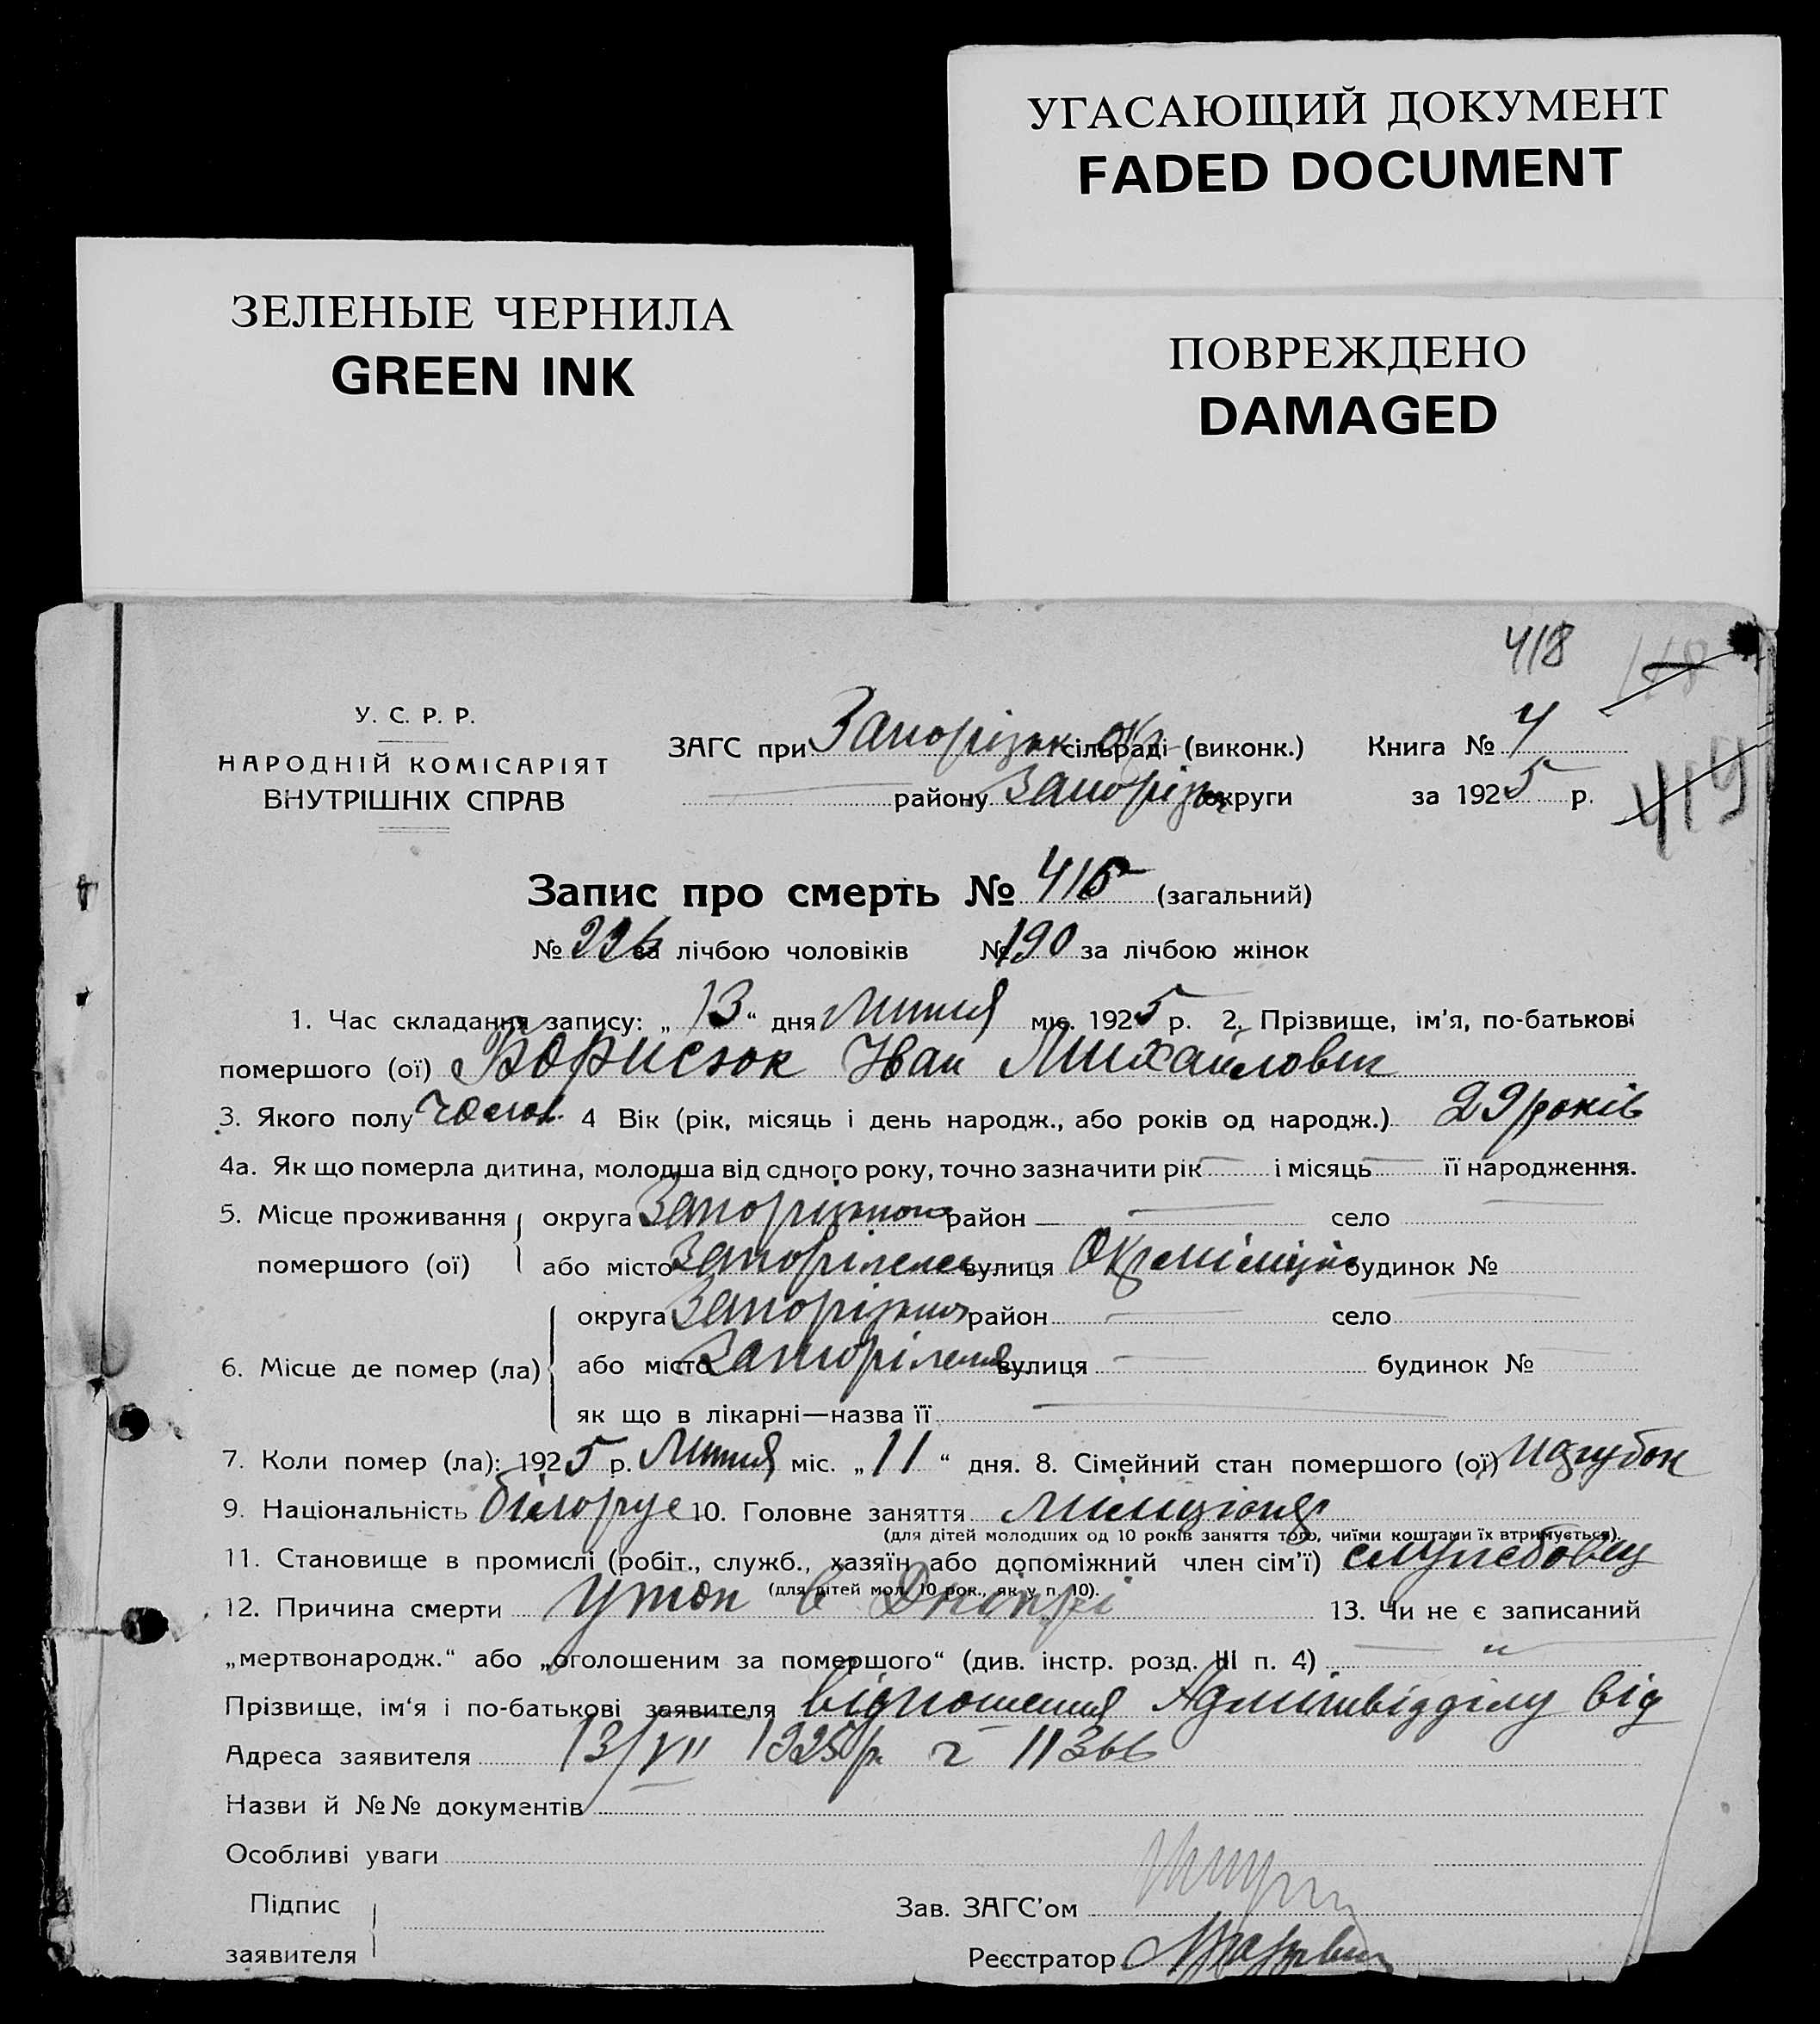 УГАСАЮЩИЙ ДОКУМЕНТ
FADED DOCUMENT
ЗЕЛЕНЫЕ ЧЕРНИЛА
GREEN INK
ПОВРЕЖДЕНО
DAMAGED
418 118
У. С. Р. Р.
НАРОДНІЙ КОМІСАРІЯТ
ВНУТРІШНІХ СПРАВ
ЗАГС при Запорізьк окр сільраді (виконк.) Книга № 4
району Запорізьк округи за 1925 р.
419
Запис про смерть № 416 (загальний)
№ 226 за лічбою чоловіків № 190 за лічбою жінок
1. Час складання запису: „ 13 “ дня Липня міс. 1925 р. 2. Прізвище, ім’я, по-батькові
помершого (ої) Борисюк Іван Михайлович
3. Якого полу чолов. 4 Вік (рік, місяць і день народж., або років од народж.) 29 років
4а. Як що померла дитина, молодша від одного року, точно зазначити рік — і місяць — її народження.
5. Місце проживання округа Запорізька район — село —
помершого (ої) або місто Запоріжжя вулиця Окрміліція будинок №
округа Запорізька район — село —
6. Місце де помер (ла) або місто Запоріжжя вулиця — будинок № —
як що в лікарні—назва її —
7. Коли помер (ла): 1925 р. Липня міс. „ 11 “ дня. 8. Сімейний стан помершого (ої) парубок
9. Національність білорус 10. Головне заняття міліціонер
(для дітей молодших од 10 років заняття того, чиїми коштами їх втримується).
11. Становище в промислі (робіт., служб., хазяїн або допоміжний член сім’ї) службовец
(для дітей мол. 10 рок., як у п. 10).
12. Причина смерти утоп в Дніпрі 13. Чи не є записаний
„мертвонародж.“ або „оголошеним за помершого“ (див. інстр. розд. III п. 4) — „ —
Прізвище, ім‘я і по-батькові заявителя відношення Адмінвідділу від
Адреса заявителя 13/VII 1925 р. ч 11366
Назви й №№ документів
Особливі уваги
Підпис
заявителя
Зав. ЗАГС’ом
Реєстратор